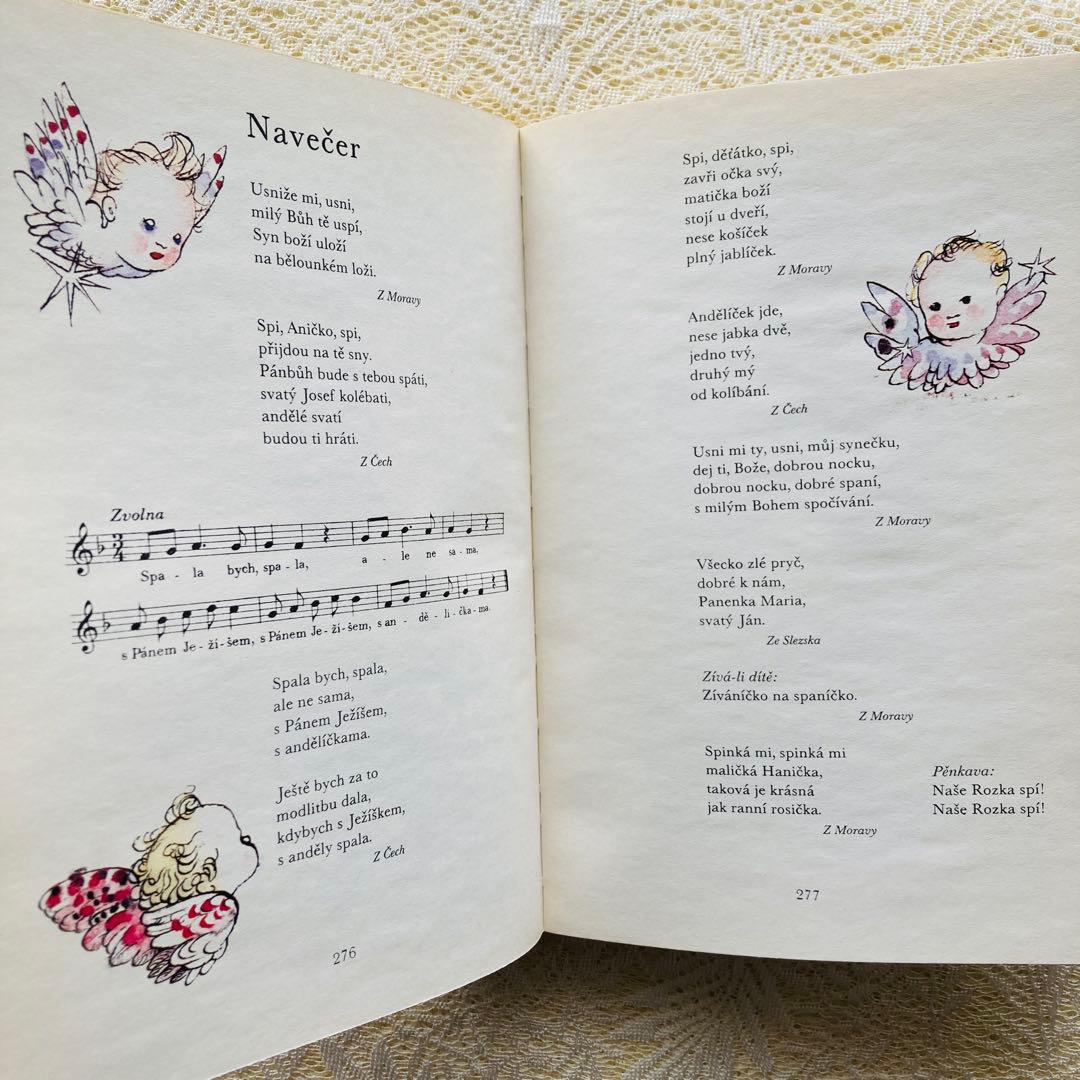 Navečer
Usniže mi, usni,
milý Bůh tě uspí,
Syn boží uloží
na bělounkém loži.
Z Moravy
Spi, Aničko, spi,
přijdou na tě sny.
Pánbůh bude s tebou spáti,
svatý Josef kolébati,
andělé svatí
budou ti hráti.
Z Čech
Zvolna
3
4
Spa - la bych, spa - la, a - le ne sa - ma,
s Pánem Je - ží - šem, s Pánem Je - ží - šem, s an - dě - li - čka - ma.
Spala bych, spala,
ale ne sama,
s Pánem Ježíšem,
s andělíčkama.
Ještě bych za to
modlitbu dala,
kdybych s Ježíškem,
s anděly spala.
Z Čech
276
Spi, děťátko, spi,
zavři očka svý,
matička boží
stojí u dveří,
nese košíček
plný jablíček.
Z Moravy
Andělíček jde,
nese jabka dvě,
jedno tvý,
druhý mý
od kolíbání.
Z Čech
Usni mi ty, usni, můj synečku,
dej ti, Bože, dobrou nocku,
dobrou nocku, dobré spaní,
s milým Bohem spočívání.
Z Moravy
Všecko zlé pryč,
dobré k nám,
Panenka Maria,
svatý Ján.
Ze Slezska
Zívá-li dítě:
Zíváníčko na spaníčko.
Z Moravy
Spinká mi, spinká mi
maličká Hanička,
taková je krásná
jak ranní rosička.
Z Moravy
Pěnkava:
Naše Rozka spí!
Naše Rozka spí!
277